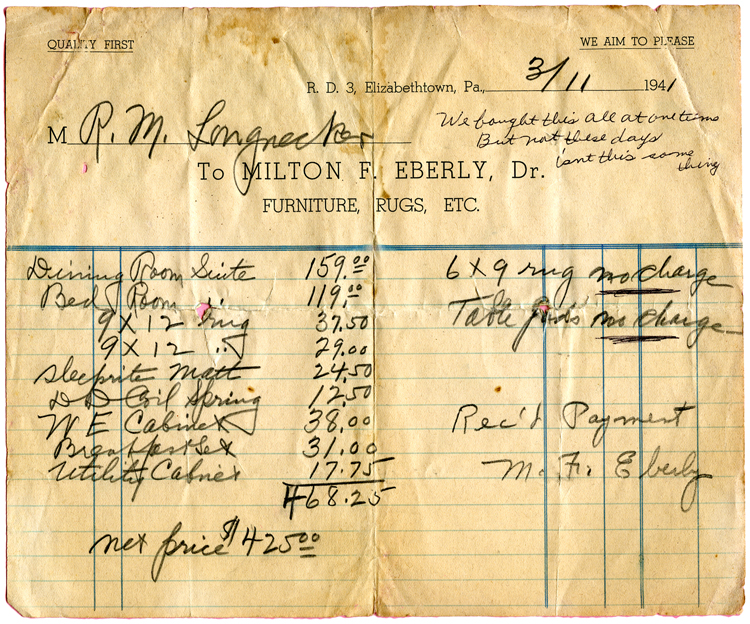 QUALITY FIRST
WE AIM TO PLEASE
R. D. 3, Elizabethtown, Pa., 3/11 1941
We bought this all at one time
But not these days
isnt this some
thing
M R. M. Longnecker
To MILTON F. EBERLY, Dr.
FURNITURE, RUGS, ETC.
Dining Room Suite 159.00
Bed Room " 119.00
9 X 12 rug 37.50
9 X 12 " 29.00
Sleeprite Matt 24.50
D D Coil Spring 12.50
W E Cabinet 38.00
Breakfast Set 31.00
Utility Cabnet 17.75
468.25
net price $425.00
6 X 9 rug no charge
Table no charge
Rec'd Payment
M. F. Eberly